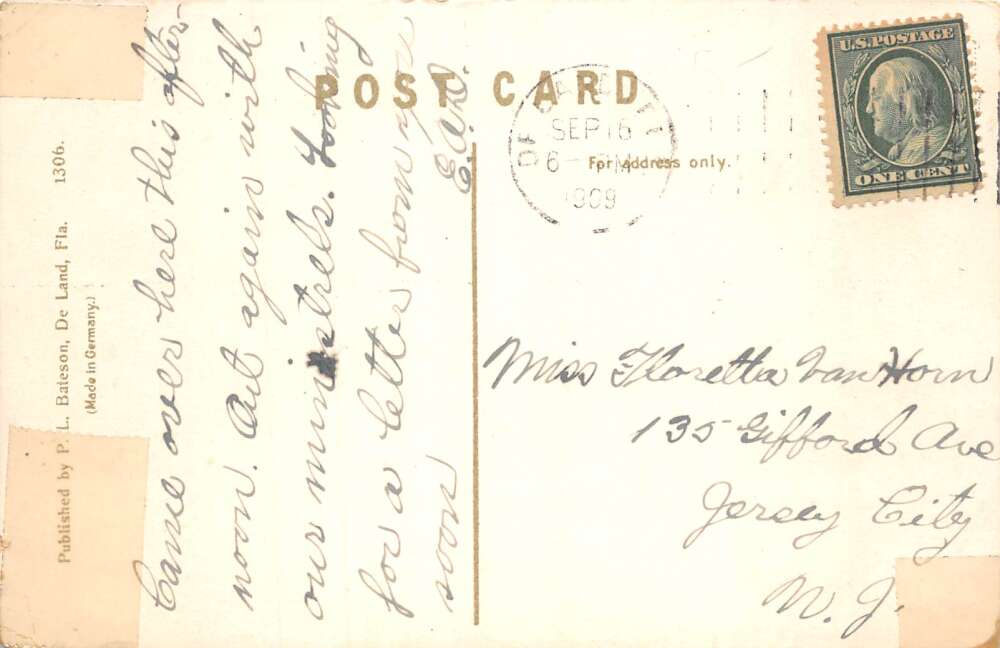 POST CARD
For address only.
U.S. POSTAGE
ONE CENT
SEP 16
6 - PM
1909
Published by P. L. Bateson, De Land, Fla. 1306.
(Made in Germany.)
Came over here this after-
noon. Out again with
our minstrels. Looking
for a letter from you
soon E.A.D.
Miss Floretta Van Horn
135 Gifford Ave
Jersey City
N. J.